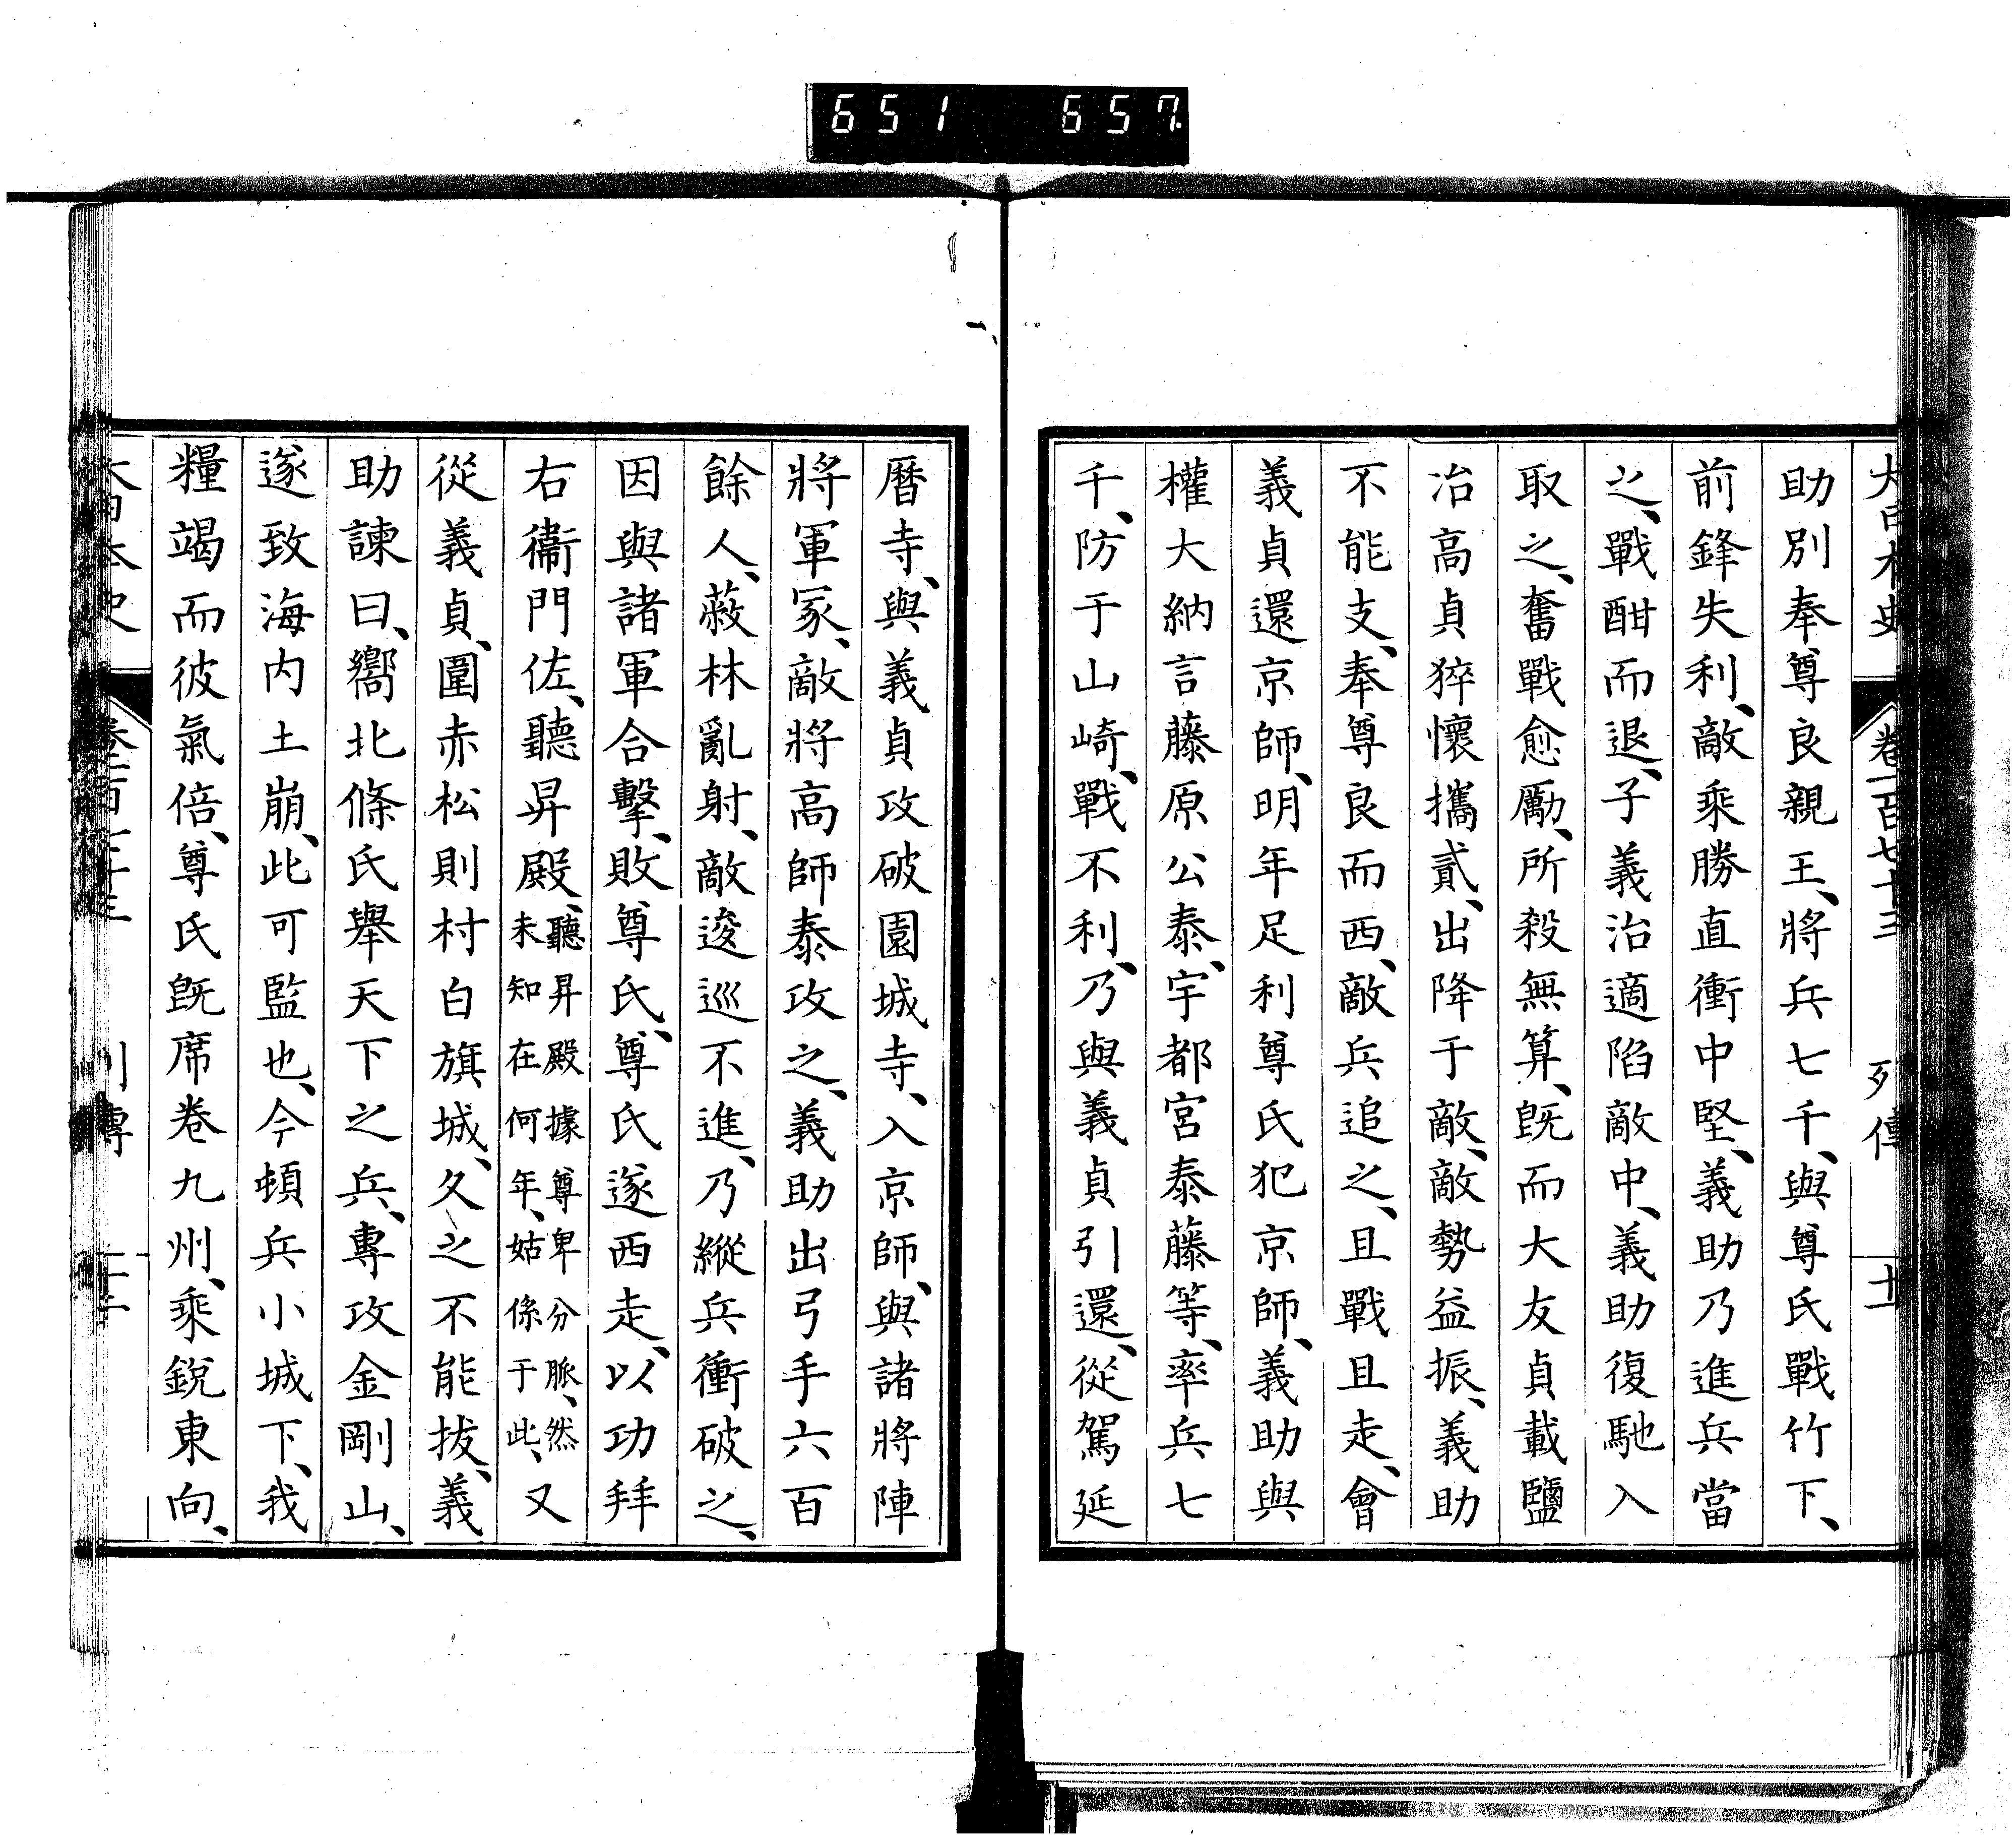 651 657
大日本史 卷一百七十三 列傳 十
助別奉尊良親王、將兵七千、與尊氏戰竹下、
前鋒失利、敵乘勝直衝中堅、義助乃進兵當
之、戰酣而退、子義治適陷敵中、義助復馳入
取之、奮戰愈勵、所殺無算、旣而大友貞載鹽
冶高貞猝懷攜貳、出降于敵、敵勢益振、義助
不能支、奉尊良而西、敵兵追之、且戰且走、會
義貞還京師、明年足利尊氏犯京師、義助與
權大納言藤原公泰、宇都宮泰藤等、率兵七
千、防于山崎、戰不利、乃與義貞引還、從駕延
曆寺、與義貞攻破園城寺、入京師、與諸將陣
將軍冢、敵將高師泰攻之、義助出弓手六百
餘人、蔽林亂射、敵逡巡不進、乃縱兵衝破之、
因與諸軍合擊、敗尊氏、尊氏遂西走、以功拜
右衞門佐、聽昇殿、聽昇殿據尊卑分脈、然
未知在何年、姑係于此、又
從義貞、圍赤松則村白旗城、久之不能拔、義
助諫曰、嚮北條氏舉天下之兵、專攻金剛山、
遂致海内土崩、此可監也、今頓兵小城下、我
糧竭而彼氣倍、尊氏旣席卷九州、乘銳東向、
大日本史 卷一百七十三 列傳